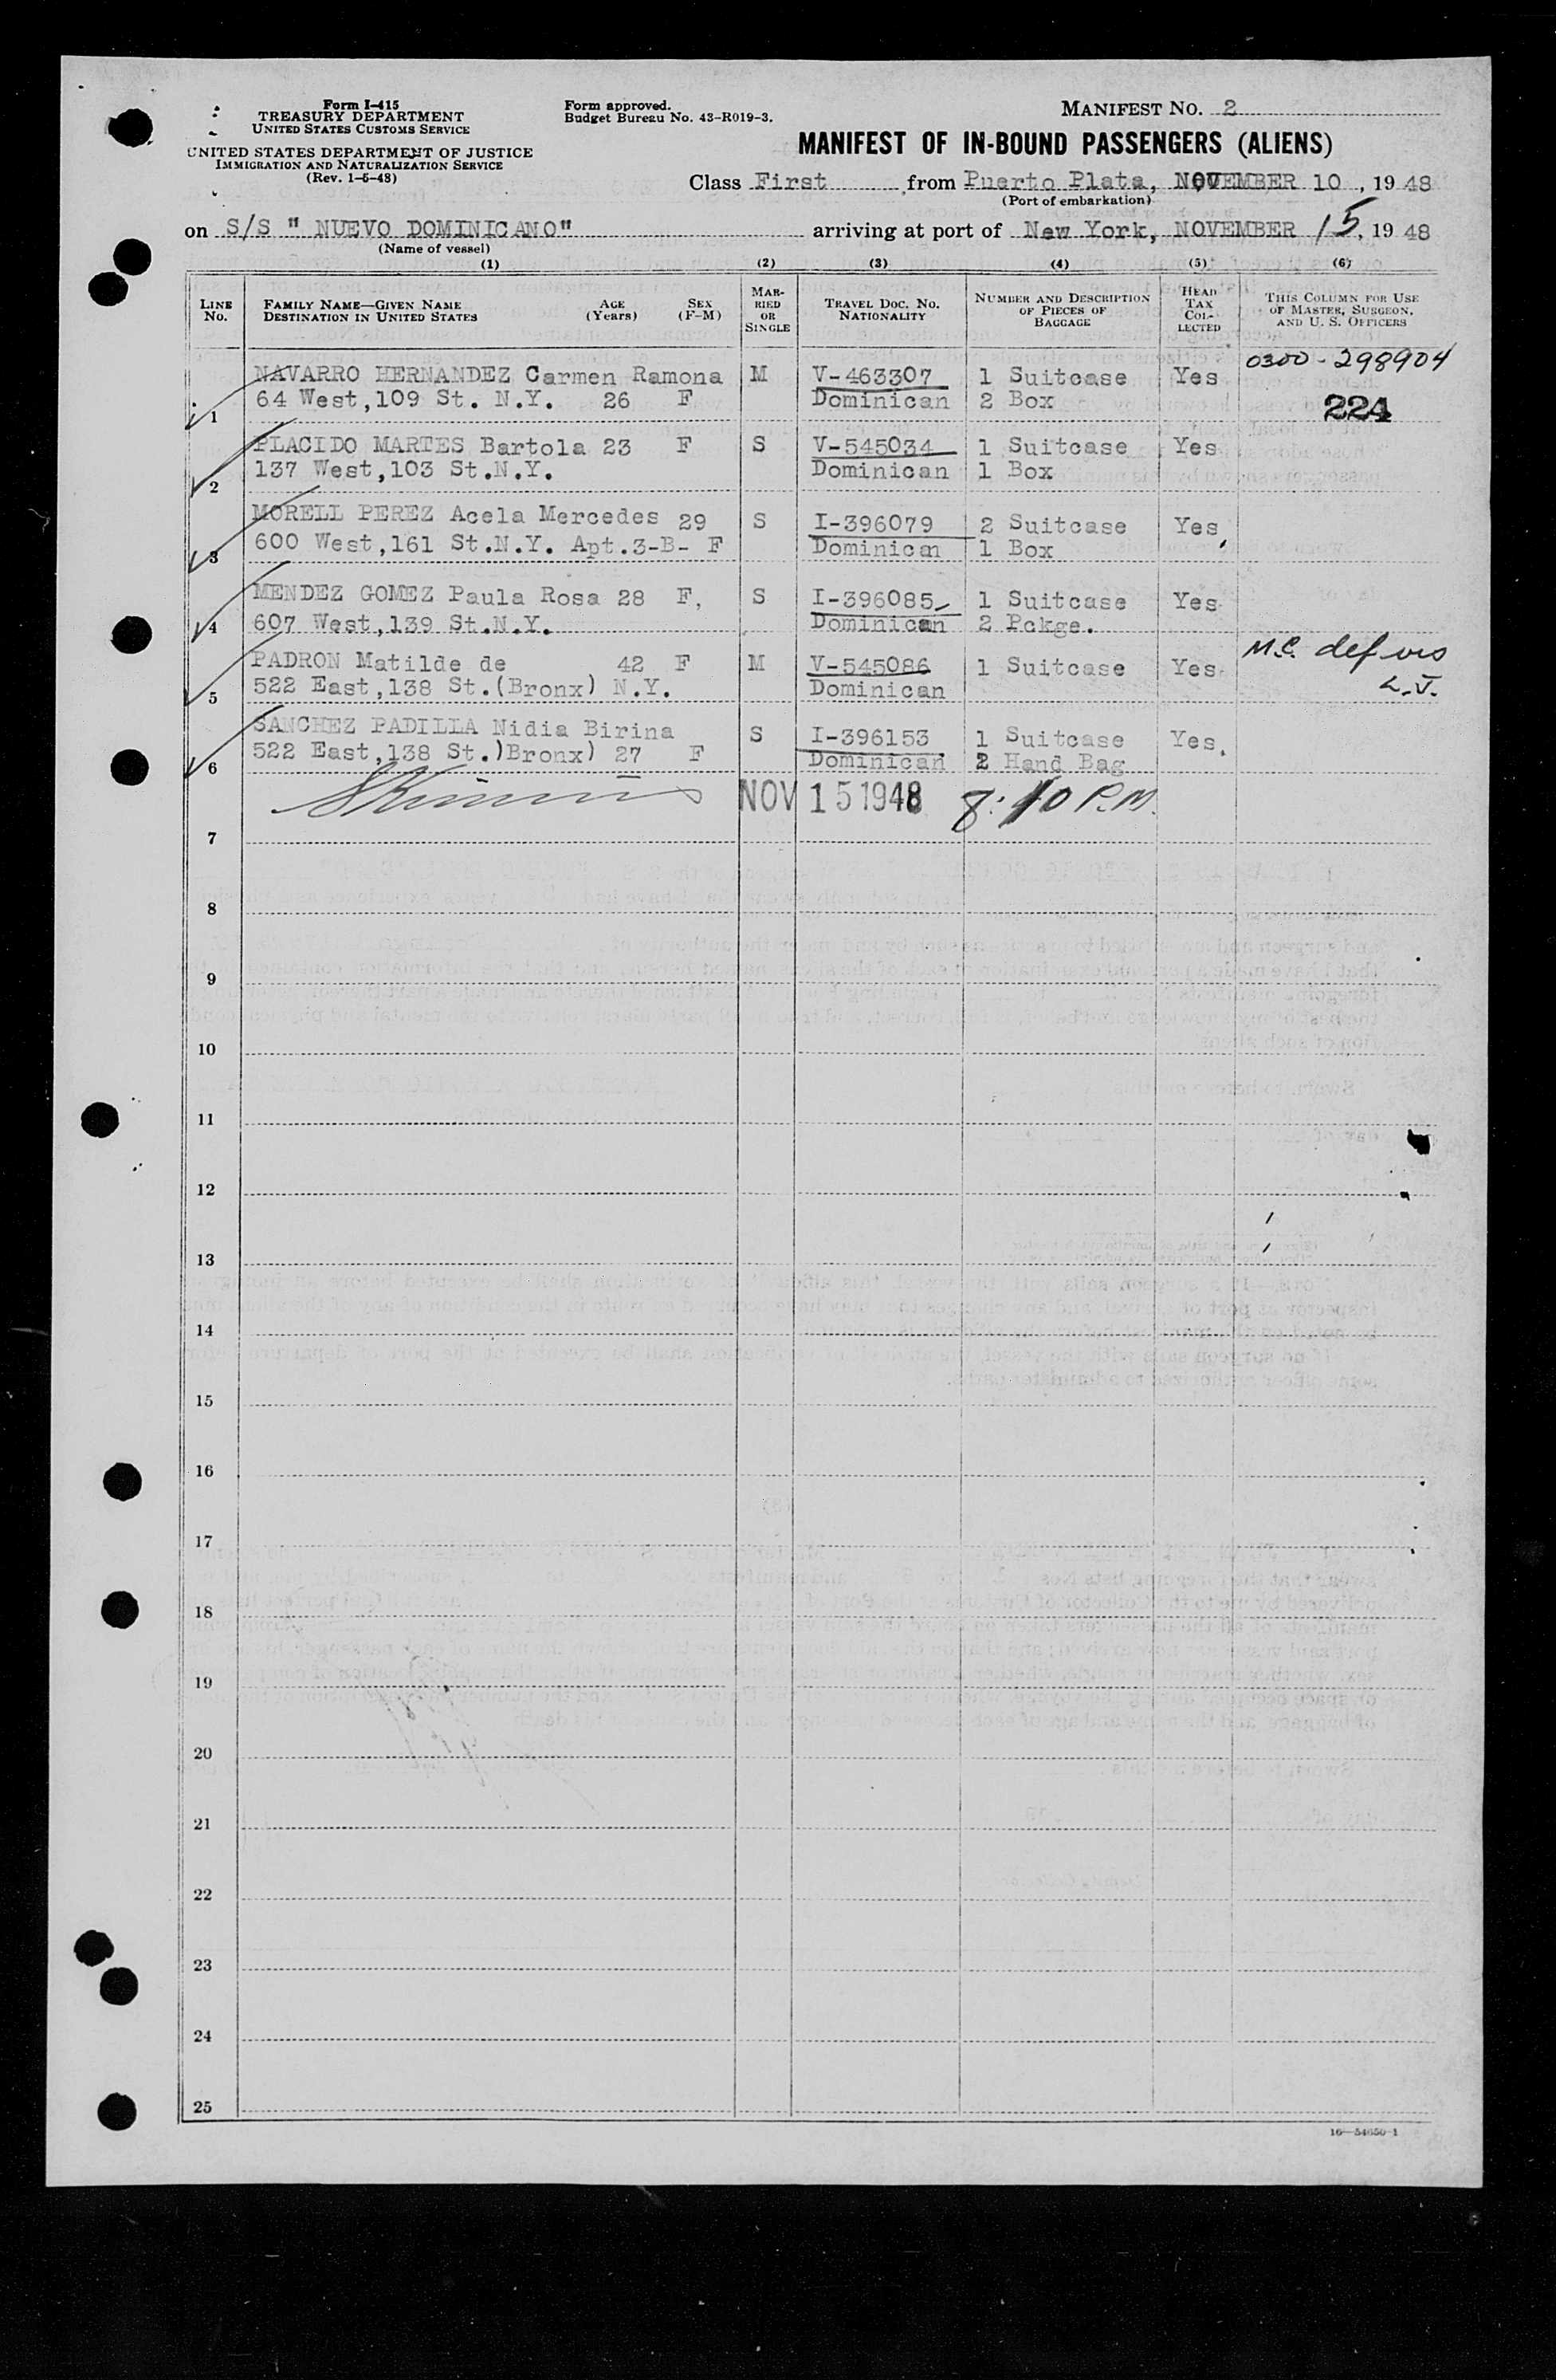 Form I-415
TREASURY DEPARTMENT
UNITED STATES CUSTOMS SERVICE
UNITED STATES DEPARTMENT OF JUSTICE
IMMIGRATION AND NATURALIZATION SERVICE
(Rev. 1-5-48)
Form approved.
Budget Bureau No. 43-R019-3.
MANIFEST NO. 2
MANIFEST OF IN-BOUND PASSENGERS (ALIENS)
Class First from Puerto Plata, NOVEMBER 10, 1948
(Port of embarkation)
on S/S " NUEVO DOMINICANO" arriving at port of New York, NOVEMBER 15, 1948
(Name of vessel)
(1) (2) (3) (4) (5) (6)
LINE No. FAMILY NAME—GIVEN NAME DESTINATION IN UNITED STATES AGE (Years) SEX (F-M) MARRIED OR SINGLE TRAVEL DOC. NO. NATIONALITY NUMBER AND DESCRIPTION OF PIECES OF BAGGAGE HEAD TAX COLLECTED THIS COLUMN FOR USE OF MASTER, SURGEON, AND U. S. OFFICERS
NAVARRO HERNANDEZ Carmen Ramona M V-463307 1 Suitcase Yes 0300-298904
1 64 West,109 St. N.Y. 26 F Dominican 2 Box 224
PLACIDO MARTES Bartola 23 F S V-545034 1 Suitcase Yes
2 137 West,103 St.N.Y. Dominican 1 Box
MORELL PEREZ Acela Mercedes 29 S I-396079 2 Suitcase Yes
3 600 West,161 St.N.Y. Apt.3-B- F Dominican 1 Box
MENDEZ GOMEZ Paula Rosa 28 F, S I-396085 1 Suitcase Yes
4 607 West,139 St.N.Y. Dominican 2 Pckge.
PADRON Matilde de 42 F M V-545086 1 Suitcase Yes M.C. def vis
5 522 East,138 St.(Bronx) N.Y. Dominican L.J.
SANCHEZ PADILLA Nidia Birina S I-396153 1 Suitcase Yes.
6 522 East,138 St.)Bronx) 27 F Dominican 2 Hand Bag
NOV 15 1948 8:10 P.M.
7
8
9
10
11
12
13
14
15
16
17
18
19
20
21
22
23
24
25
16—54650-1